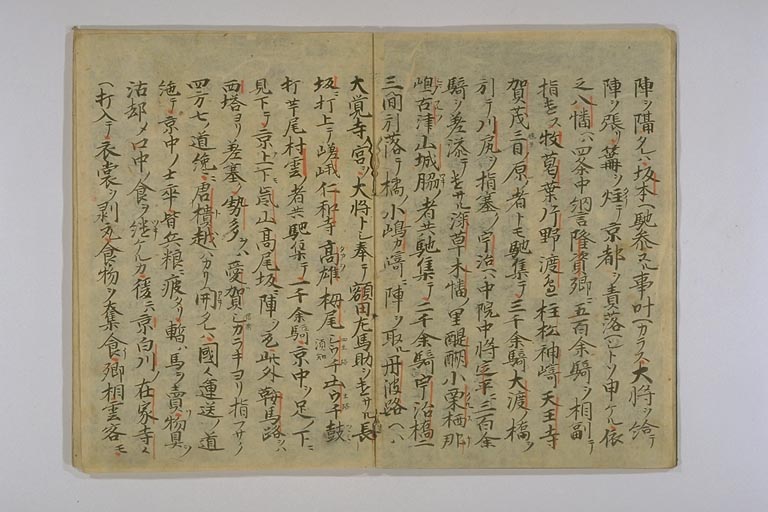 陣ヲ隔タレハ坂本ヘ馳参スル事叶ヘカラス大将ヲ給テ
陣ヲ張リ篝ヲ焼テ京都ヲ責落ヘシトソ申ケル依
之八幡ヘハ四条中納言隆資卿ニ五百余騎ヲ相副テ
指遣ス牧葛葉片野渡邊柱松神崎天王寺
賀茂三日ノ原ノ者トモ馳集テ三千余騎大渡ノ橋ヲ
引テ川尻ヲ指塞ク宇治ヘハ中院中将定平ニ三百余
騎ヲ差添テ遣サル深草木幡ノ里醍醐小栗栖那
嶋古津山城脇ノ者共馳集テ二千余騎宇治橋一
三間引落テ橘ノ小嶋カ崎ニ陣ヲ取ル丹波路ヘハ
大覚寺ノ宮ヲ大将トシ奉テ額田左馬助ヲ遣サル長
坂ニ打上テ嵯峨仁和寺高雄栂尾
打芋尾村雲ノ者共馳集テ一千余騎京中ヲ足ノ下ニ
見下テ京上下嵐山高尾坂ニ陣ヲ取此外鞍馬路ハ
西塔ヨリ差塞ク勢多ヲハ愛智シカラキヨリ指フサク
四方七ノ道絶テ唐櫃越ハカリ開タレハ國々運送ノ道
絶テ京中ノ士卒皆兵粮ニ疲タリ暫ハ馬ヲ賣物具ヲ
沽却メ口中ノ食ヲ継ケルカ後ニハ京白川ノ在家寺々
ヘ打入テ衣裳ヲ剥取食物ヲ奪食卿相雲客モ